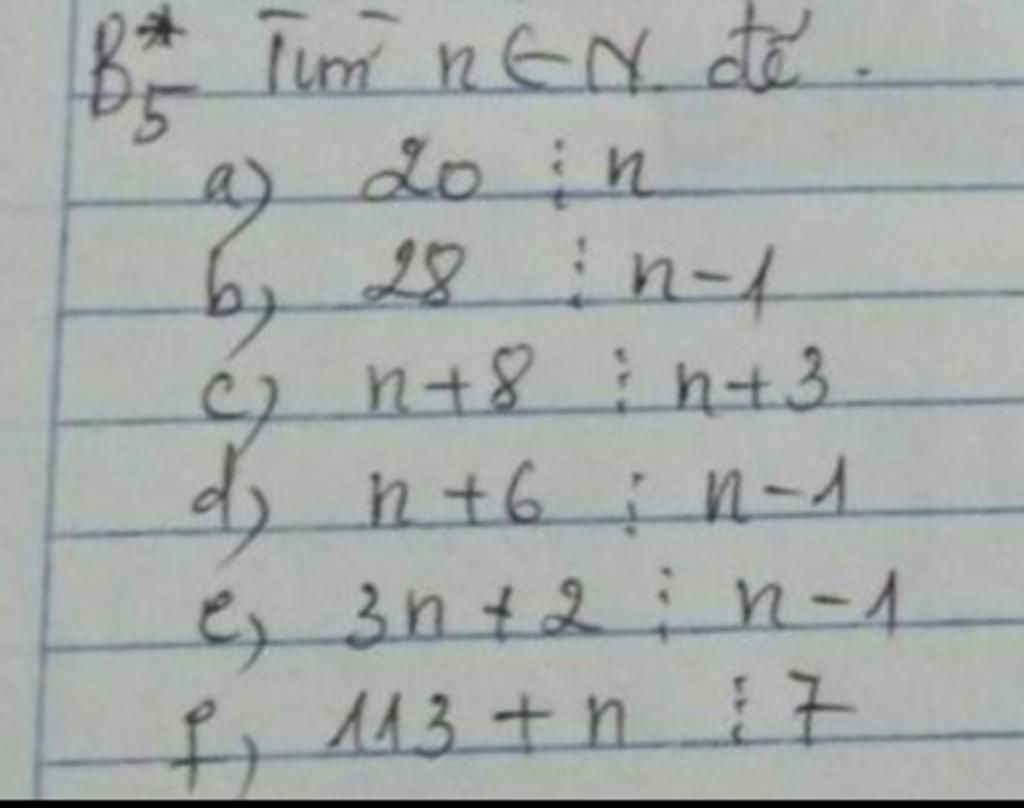 B5* Tìm n ∈ N để.
a) 20 ⋮ n
b) 28 ⋮ n-1
c) n+8 ⋮ n+3
d) n+6 ⋮ n-1
e) 3n+2 ⋮ n-1
f) 113+n ⋮ 7